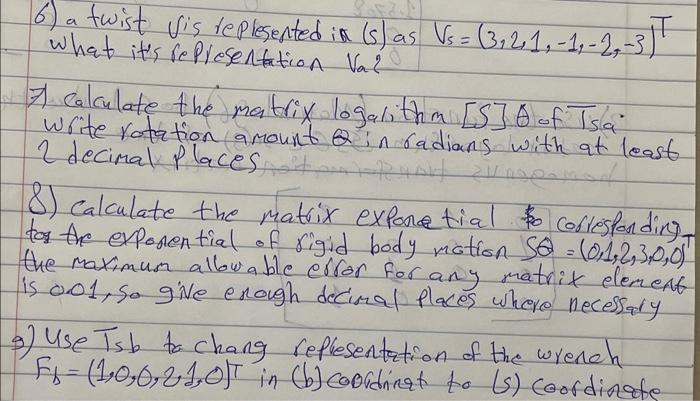 6) a twist V is represented in (s) as Vs = (3,2,1,-1,-2,-3)^T
what it's representation Va?
7) calculate the matrix logarithm [S]θ of Tsa.
write rotation amount θ in radians with at least
2 decimal places
8) calculate the matrix exponetial to corresponding
tos the exponential of rigid body motion Sθ = (0,1,2,3,0,0)^T
the maximum allowable error for any matrix element
is 0.01, so give enough decimal places where necessary
9) Use Tsb to chang representation of the wrench
Fb = (1,0,0,2,1,0)^T in (b) coordinat to (s) coordinate